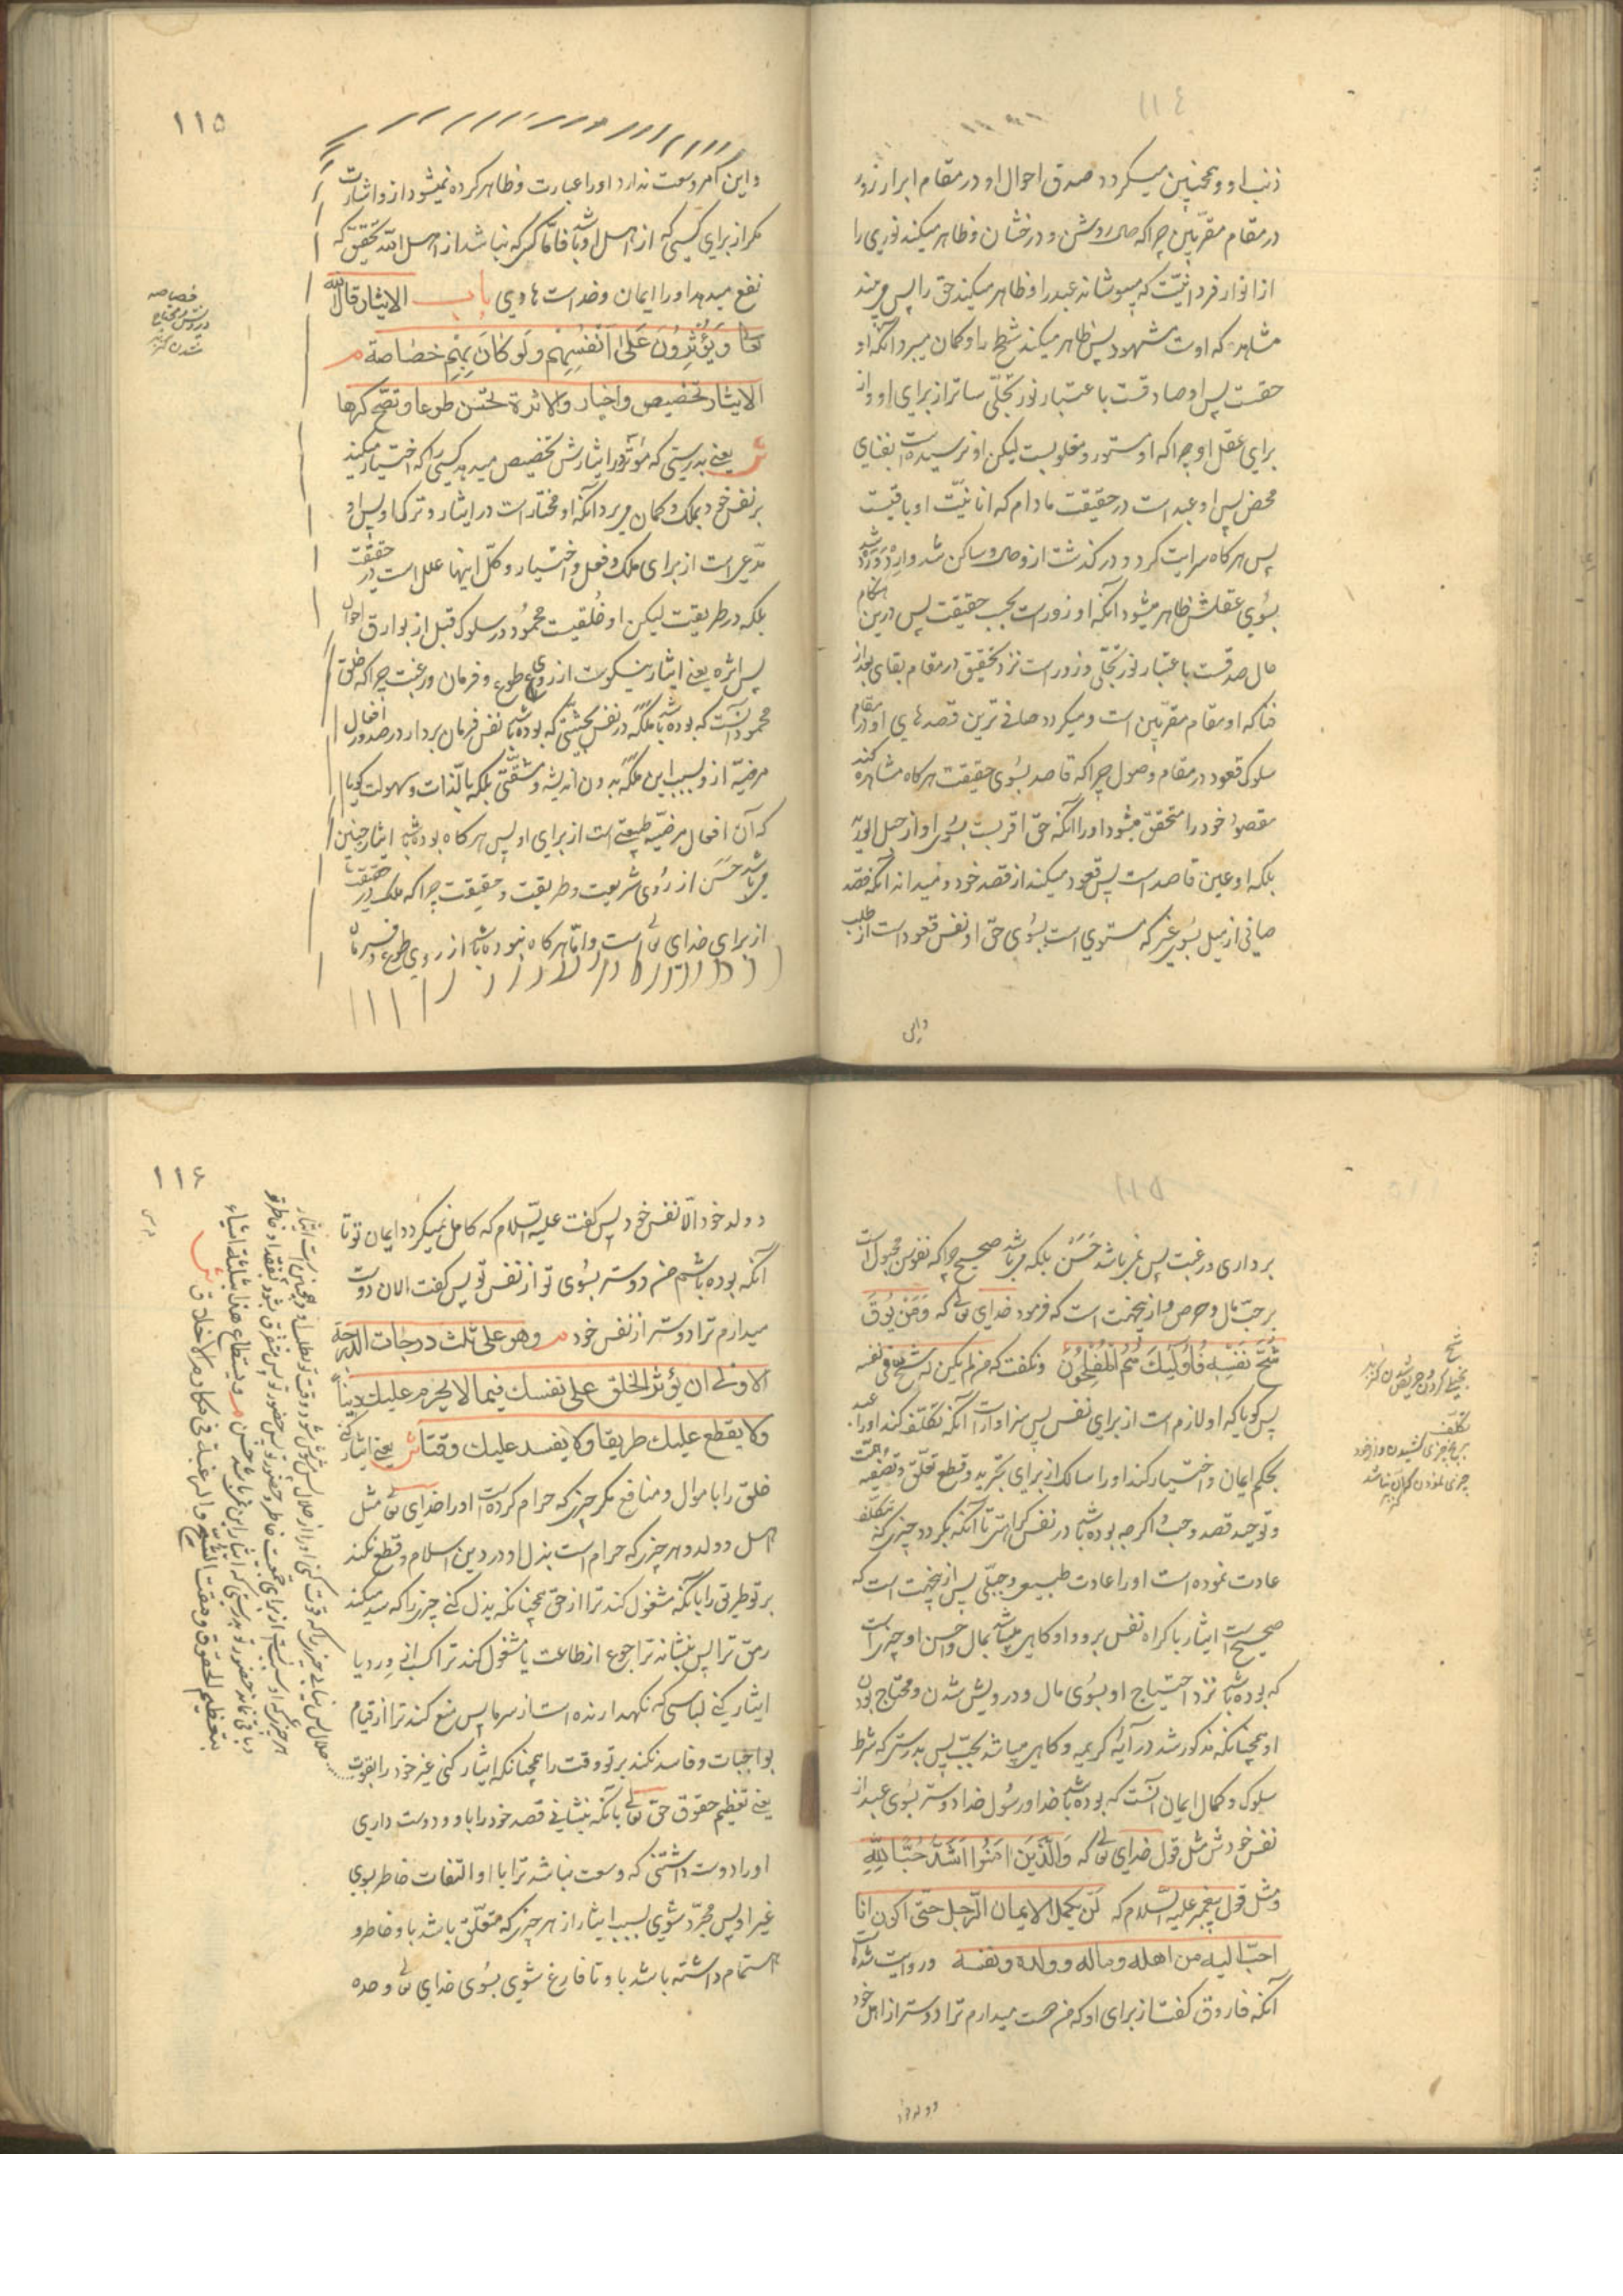 ١١٤
ذنب او و همچنین میکردد صدق احوال او در مقام ابرار زور
در مقام مقرّبین چراکه حال روشن و درخشان و ظاهر میکند نوری را
از انوار فردانیّت که میپوشاند عبد را و ظاهر میکند حق را پس می بیند
مشاهد که اوست مشهود پس ظاهر میکند شطح را و کمان میبرد آنکه او
حقست پس او صادقست باعتبار نور تجلّی ساتر از برای او و از
برای عقل او چراکه او مستور و مغلوبست لیکن او نرسیده است بفنای
محض پس او عبد است در حقیقت مادام که انانیّت او باقیست
پس هرکاه سرایت کرد و در کذشت ازو حال و ساکن شد و ارد و رد شد
بسوی عقلش ظاهر میشود آنکه او زور است بحسب حقیقت پس درین هنکام
حال صدقست باعتبار نور تجلّی و زور است نزد تحقیق در مقام بقای بعد از
فنا که او مقام مقرّبین است و میکردد صافی ترین قصدهای او در مقام
سلوک قعود در مقام وصول چراکه قاصد بسوی حقیقت هرکاه مشاهده کند
مقصود خود را متحقق میشود او را آنکه حق اقربست بسوی او از حبل الورید
بلکه او عین قاصد است پس قعود میکند از قصد خود و میداند آنکه قصد
صافی از میل بسوی غیر که مستوی است بسوی حق او نفس قعود است از طلب
واین
١١٥
و این امر وسعت ندارد او را عبارت و ظاهر کرده نمیشود ازو اشارت
مکر از برای کسی که از اهل او باشد فامّا کسی که نباشد از اهل او بتحقیق که
نفع میدهد او را ایمان و خداست هادی باب الایثار قال الله
تعا وَیُؤْثِرُونَ عَلیٰ اَنْفُسِهِمْ وَلَوْ کَانَ بِهِمْ خَصَاصَة م
الایثار تخصیص و اختیار و الاثرة تحسن طوعا و تصح کرها
ش یعنی بدرستی که مؤثر در ایثارش تخصیص میدهد کسی را که اختیار میکند
بر نفس خود بملک و کمان میبرد آنکه او مختار است در ایثار و ترک او پس او
مدّعی است از برای ملک و فعل و اختیار و کلّ اینها علل است در حقیقت
بلکه در طریقت لیکن او خُلقیست محمود در سلوک قبل از بوارق احوال
پس اثره یعنی ایثار نیکوست از روی طوع و فرمان و رغبت چراکه خلق
محمود آنست که بوده باشد ملکه در نفس بحیثیتی که بوده باشد نفس فرمان بردار در صدور افعال
مرضیّه ازو بسبب این ملکه بدون اندیشه و مشقّتی بلکه بالّذات و سهولت کویا
که آن افعال مرضیّه طبیعتی است از برای او پس هرکاه بوده باشد ایثار چنین
می باشد حَسَن از روی شریعت و طریقت و حقیقت چراکه ملک در حقیقت
از برای خدای تعالی است و امّا هرکاه نبوده باشد از روی طوع و فرمان
خصاصه
درویش و محتاج
شدن
١١٥
برداری و رغبت پس نمی باشد حَسَنْ بلکه می باشد صحیح چراکه نفوس مجبول است
بر حبّ مال و حرص و ازینجهت است که فرمود خدای تعالی که وَمَنْ یُوقَ
شُحَّ نَفْسِهِ فَاُولٰئِکَ هُمُ الْمُفْلِحُونْ و نکفت که من لم یکن له شح فی نفسه
پس کویا که او لازم است از برای نفس پس سزاوار است آنکه تکلّف کند او را عبد
بحکم ایمان و اختیار کند او را سالک از برای تجرید و قطع تعلّق و تصفیه
و توحید قصد و حبّ اکرچه بوده باشد در نفس کراهتی تا آنکه بکردد چیزی که تکلّف
عادت نموده است او را عادت طبیعی و جبلّی پس ازینجهت است که
صحیح است ایثار باکراه نفس برو و او کاهی میباشد بمال و احسن او چیزی است
که بوده باشد نزد احتیاج او بسوی مال و درویش شدن و محتاج بودن
او همچنانکه مذکور شد در آیه کریمه و کاهی میباشد بحبّ پس بدرستی که شرط
سلوک و کمال ایمان آنست که بوده باشد خدا و رسول خدا دوستر بسوی عبد از
نفس خودش مثل قول خدای تعالی که وَالَّذِینَ اٰمَنُوا اَشَدُّ حُبًّا لِلّٰهِ
و مثل قول پیغمبر علیه السّلام که لن یکمل الایمان الرّجل حتّی اکون انا
احبّ الیه من اهله و ماله و ولده و نفسه و روایت شده است
آنکه فاروق کفت از برای او که من هست میدارم ترا دوستر از اهل خود
شح
بخیلی کردن و حریص شدن
تکلّف
و ولد خود
١١۶
و ولد خود الّا نفس خود پس کفت علیه السّلام که کامل نمیکردد ایمان تو تا
آنکه بوده باشم من دوستر بسوی تو از نفس تو پس کفت الان دوست
میدارم ترا دوستر از نفس خود م وهو علی ثلث درجات الدّرجة
الاولی ان یؤثر الخلق علی نفسک فیما لا یحرم علیک دیناً
ولا یقطع علیک طریقا ولا یفسد علیک وقتا ش یعنی ایثار کنی
خلق را باموال و منافع مکر چیزی که حرام کرده است او را خدای تعالی مثل
اهل و ولد و هر چیزی که حرام است بذل او در دین اسلام و قطع نکند
بر تو طریقی را بآنکه مشغول کند ترا از حق همچنانکه بذل کنی چیزی را که سد میکند
رمق ترا پس بنشاند ترا جوع از طاعت یا مشغول کند ترا کسانی و ردیا
ایثار کنی لباسی که نکهدارنده است از سرما پس منع کند ترا از قیام
بواجبات و فاسد نکند بر تو وقت را همچنانکه ایثار کنی غیر خود را بقوت
حلال پس نیابی چیزی را که قوت کنی او را از حلال پس مشوش شود وقت تو بطلب او و همچنین است ایثار
هر چیزی که او سبب است از برای جمعیت خاطر و حضور تو پس متفرق شود بفقد او خاطر تو
و باقی نماند حضور تو بدرستی که ایثار این نمی باشد حسن م ویستطاع هذا بثلثة اشیاء
بتعظیم الحقوق و مقت الشّحّ والرغبة فی مکارم الاخلاق ش
یعنی تعظیم حقوق حق تعالی بآنکه بنشانی قصد خود را باو و دوست داری
او را دوست داشتنی که وسعت نباشد ترا با او التفات خاطر بسوی
غیر او پس مجرّد شوی بسبب ایثار از هر چیزی که متعلّق باشد باو خاطر و
اهتمام داشته باشد باو تا فارغ شوی بسوی خدای تعالی وحده